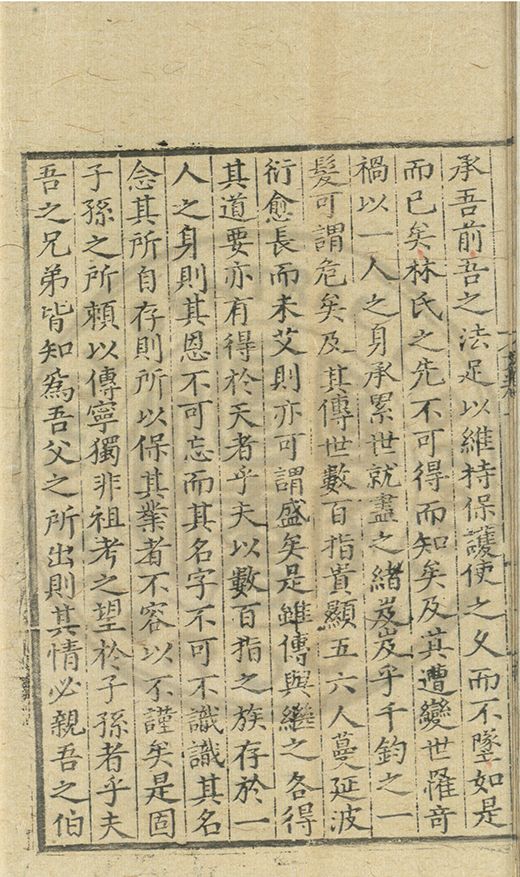 承吾前吾之法足以維持保護使之久而不墜如是
而已矣林氏之先不可得而知矣及其遭變世罹奇
禍以一人之身承累世就盡之緒岌岌乎千鈞之一
髮可謂危矣及其傳世數百指貴顯五六人蔓延波
衍愈長而未艾則亦可謂盛矣是雖傳與繼之各得
其道要亦有得於天者乎夫以數百指之族存於一
人之身則其恩不可忘而其名字不可不識識其名
念其所自存則所以保其業者不容以不謹矣是固
子孫之所賴以傳寧獨非祖考之望於子孫者乎夫
吾之兄弟皆知爲吾父之所出則其情必親吾之伯